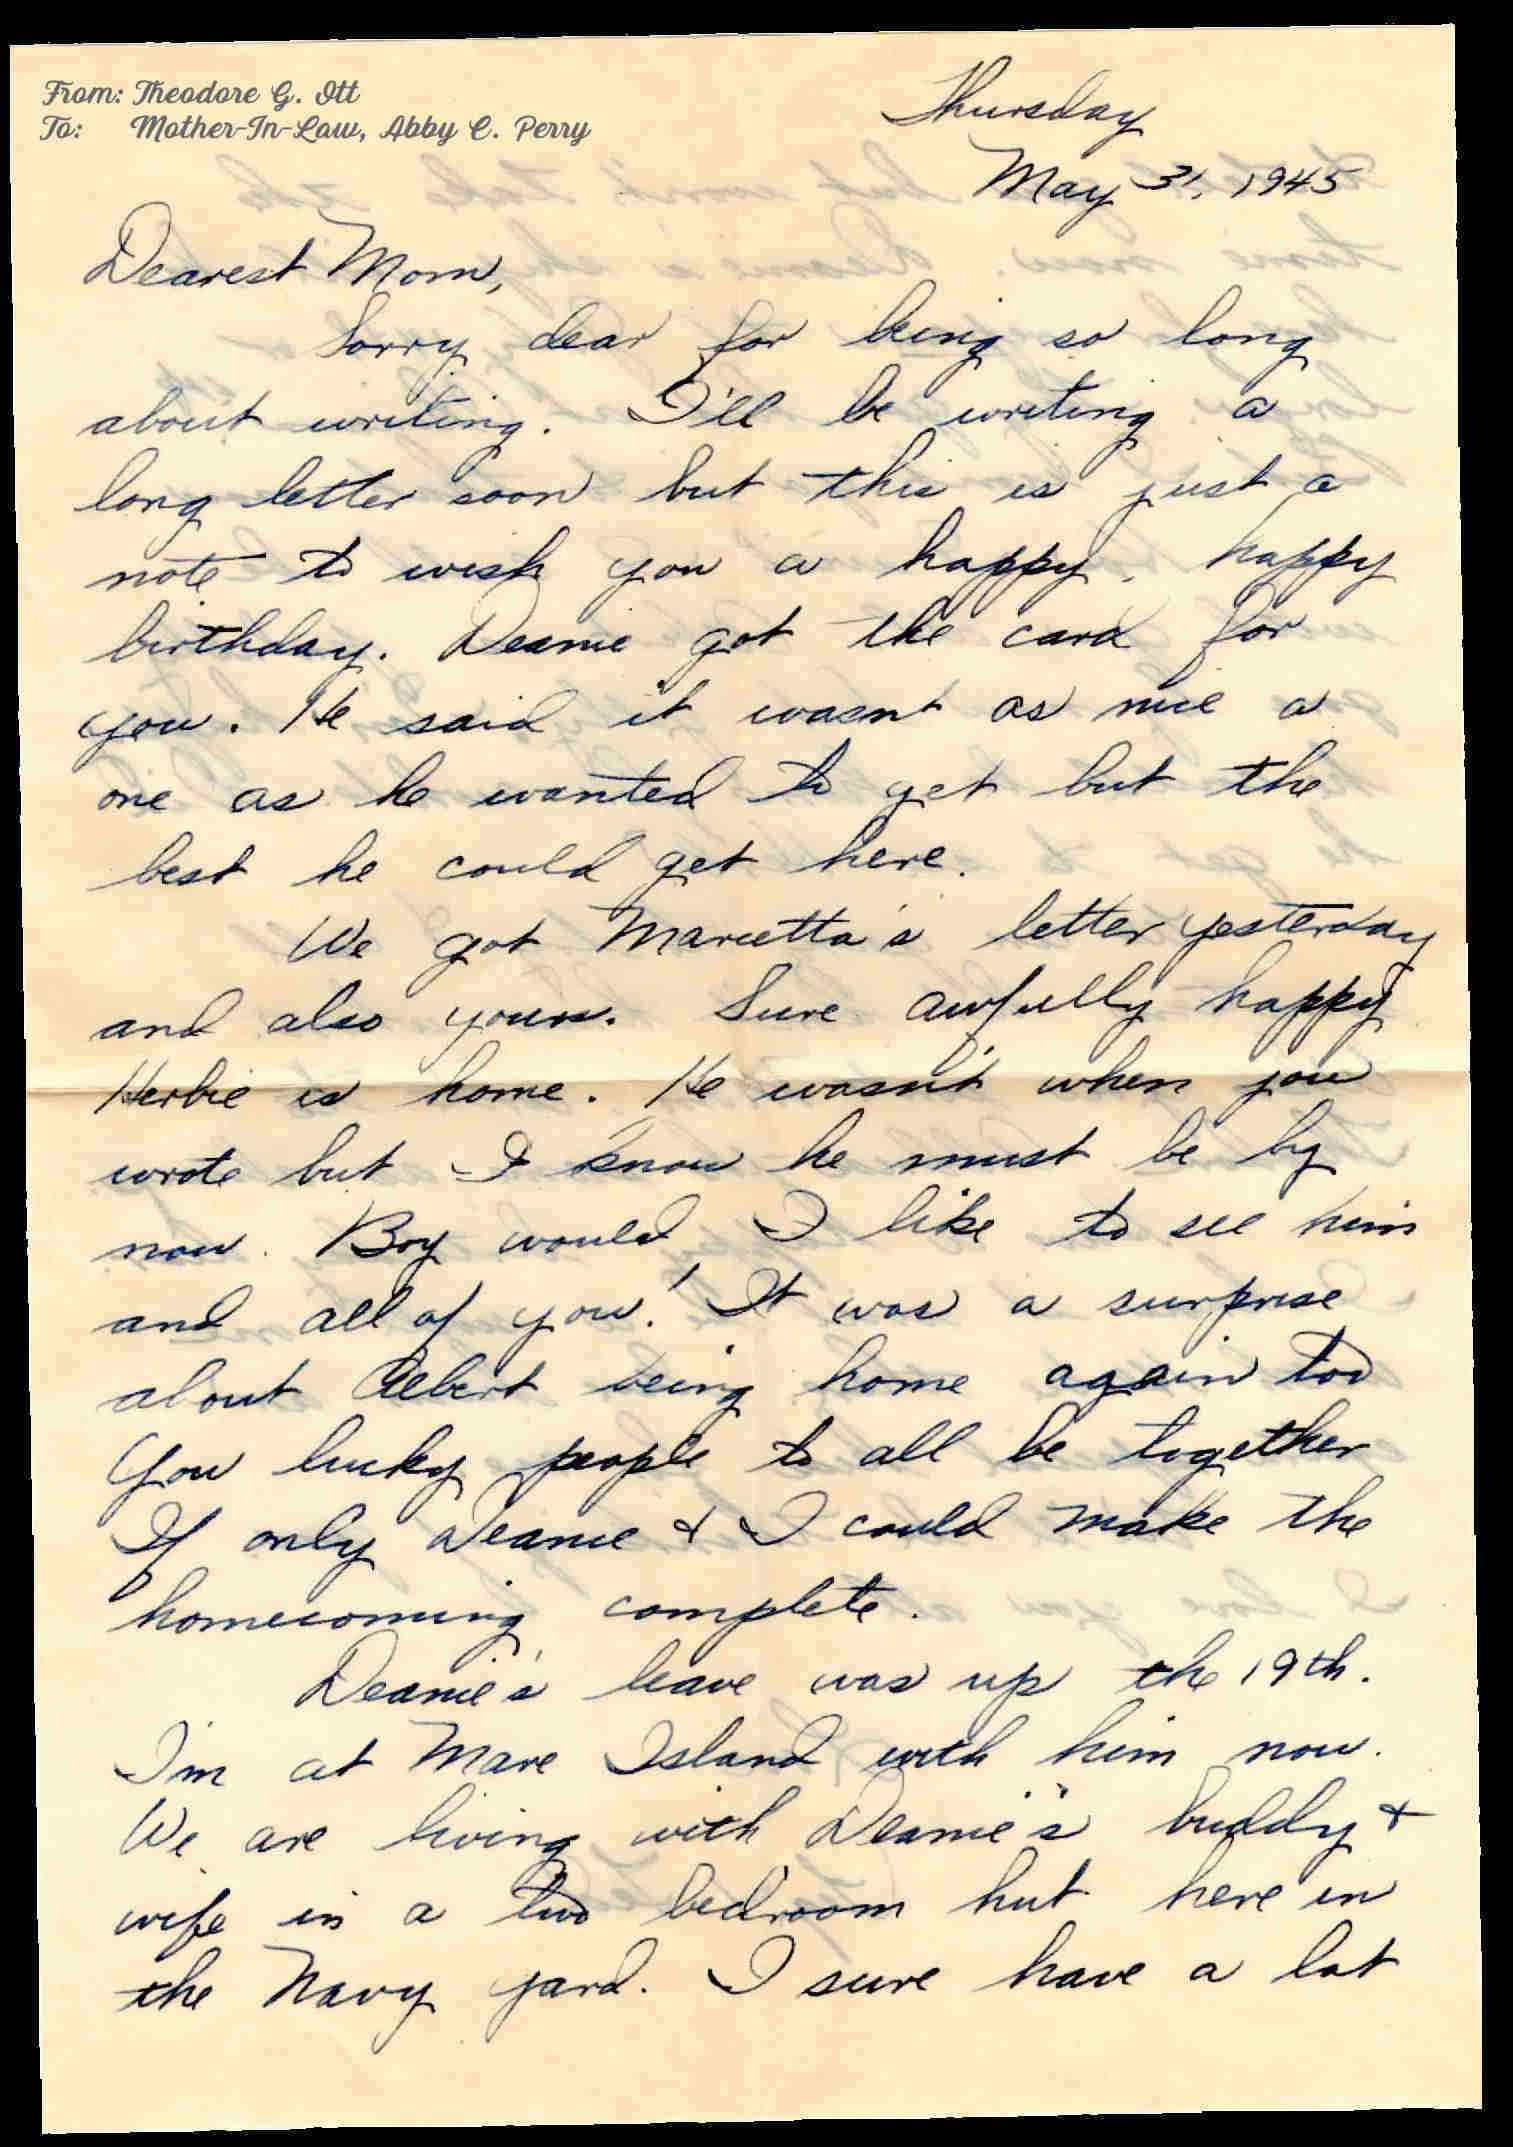 From: Theodore G. Ott
To: Mother-In-Law, Abby C. Perry
Thursday
May 31, 1945
Dearest Mom,
Sorry dear for being so long
about writing. I'll be writing a
long letter soon but this is just a
note to wish you a happy, happy
birthday. Deanie got the card for
you. He said it wasnt as nice a
one as he wanted to get but the
best he could get here.
We got Marietta's letter yesterday
and also yours. Sure awfully happy
Herbie is home. He wasn't when you
wrote but I know he must be by
now. Boy would I like to see him
and all of you! It was a surprise
about Albert being home again too
You lucky people to all be together
If only Deanie & I could make the
homecoming complete.
Deanie's leave was up the 19th.
I'm at Mare Island with him now.
We are living with Deanie's buddy &
wife in a two bedroom hut here in
the Navy yard. I sure have a lot